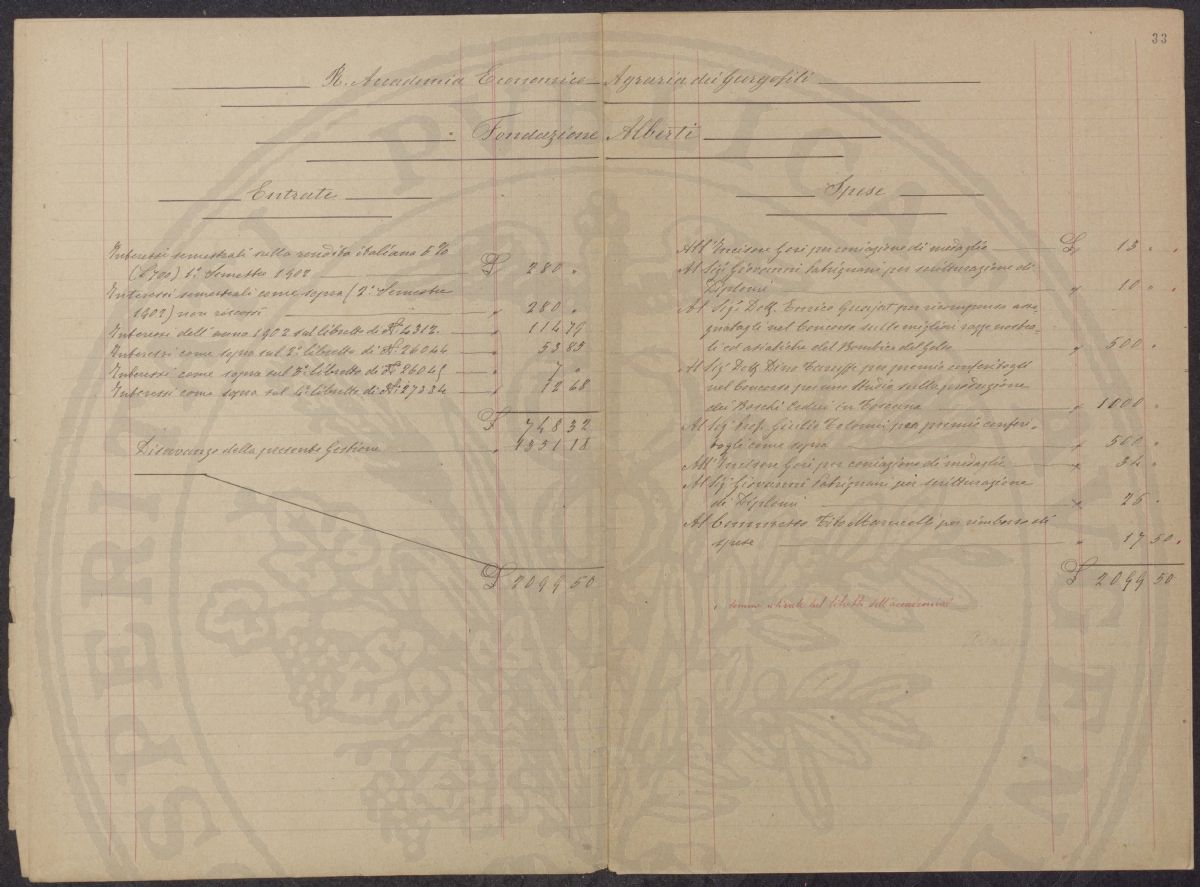 33
R. Accademia Economico-Agraria dei Gergofili
Fondazione Alberti
Entrate
Interessi semestrali sulla rendita italiana 5%
(£ 700) 1.° Semestre 1902 £ 280 "
Interessi semestrali come sopra (2.° Semestre
1902) non riscossi " 280 "
Interessi dell'anno 1902 sul libretto di N.° 4312 " 114 79
Interessi come sopra sul 2.° libretto di N.° 26044 " 53 85
Interessi come sopra sul 3.° libretto di N.° 26045 " 7 "
Interessi come sopra sul 4.° libretto di N.° 27384 " 12 68
£ 748 32
Disavanzo della presente Gestione " 1351 18
£ 2099 50
Spese
All'Incisore Gori per coniazione di medaglia £ 13 " "
Al Sig.r Giovanni Patrignani per scritturazione di
Diplomi " 10 " "
Al Sig.r Dott. Enrico per ricompensa asse
gnatagli nel Concorso sulle migliori razze nostra-
li ed asiatiche del Bombice del Gelso " 500 "
Al Sig.r Dott. Dino Taruffi per premio conferitogli
nel Concorso per uno studio sulla produzione
dei Boschi Cedui in Toscana " 1000 "
Al Sig.r Prof. Giulio per premio conferi-
togli come sopra " 500 "
All'Incisore Gori per coniazione di medaglie " 34 "
Al Sig.r Giovanni Patrignani per scritturazione
di Diplomi " 25 "
Al Commesso Tito Marucelli per rimborso di
spese " 17 50 "
£ 2099 50
" somme ritirate dal libretto dell'accademia
PERITI PUBLICA